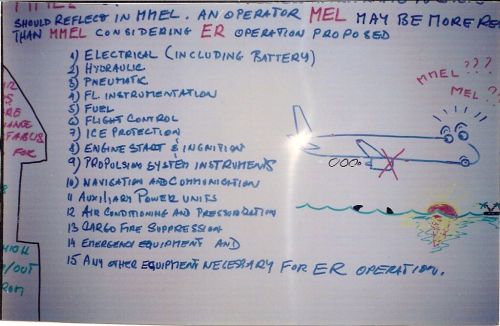 SHOULD REFLECT IN MMEL. AN OPERATOR MEL MAY BE MORE RE
THAN MMEL CONSIDERING ER OPERATION PROPOSED
1) ELECTRICAL (INCLUDING BATTERY)
2) HYDRAULIC
3) PNEUMATIC
4) FL. INSTRUMENTATION
5) FUEL
6) FLIGHT CONTROL
7) ICE PROTECTION
8) ENGINE START & INGNITION
9) PROPULSION SYSTEM INSTRUMENTS
10) NAVIGATION AND COMMUNICATION
11 AUXILIARY POWER UNITS
12 AIR CONDITIONING AND PRESSURIZATION
13 CARGO FIRE SUPPRESSION
14 EMERGENCY EQUIPMENT AND
15 ANY OTHER EQUIPMENT NECESSARY FOR ER OPERATION.
MMEL ???
MEL ??
FOR
HIGH
/OUT
ROM